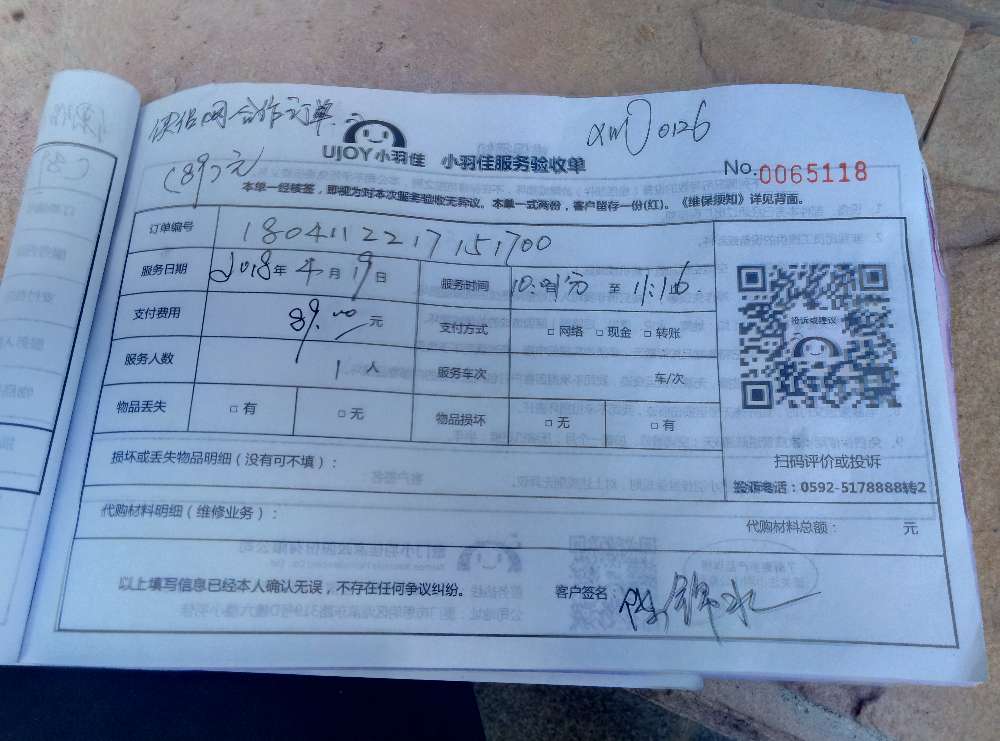 侠侣网合作订单
XMJ0126
(89)元
UJOY小羽佳 小羽佳服务验收单
No.0065118
本单一经核签，即视为对本次服务验收无异议。本单一式两份，客户留存一份(红)。《维保须知》详见背面。
订单编号 1804112217151700
服务日期 2018年4月19日 服务时间 至 11:16
支付费用 89.00元 支付方式 □网络 □现金 □转账
服务人数 1人 服务车次 车/次
物品丢失 □有 □无 物品损坏 □无 □有
投诉或建议
扫码评价或投诉
投诉电话：0592-5178888转2
损坏或丢失物品明细（没有可不填）：
代购材料明细（维修业务）： 代购材料总额： 元
以上填写信息已经本人确认无误，不存在任何争议纠纷。 客户签名：